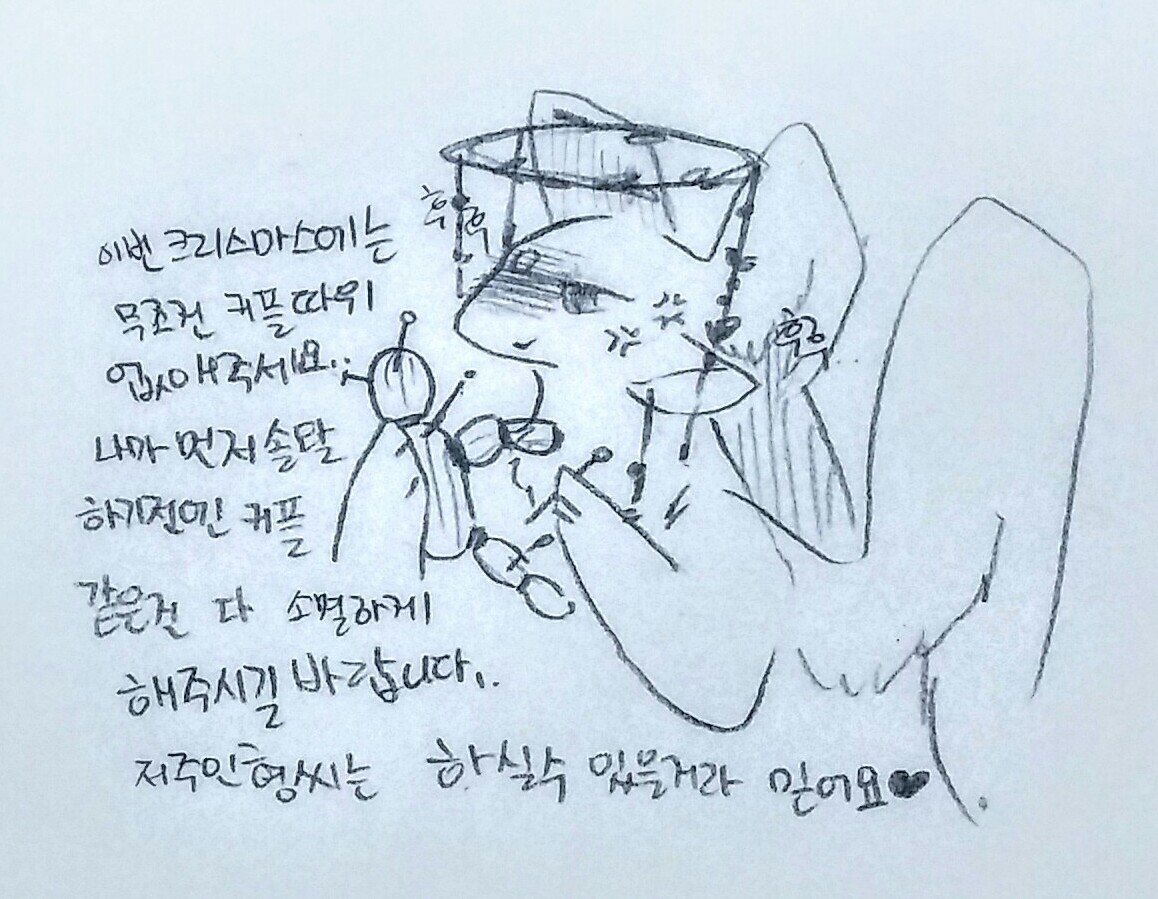 이번 크리스마스에는
무조건 커플따위
없애주세요..
나가 먼저 솔탈
하기전엔 커플
같은걸 다 소멸하게
해주시길 바랍니다..
저주인형씨는 하실수 있을거라 믿어요♥
후후
후후